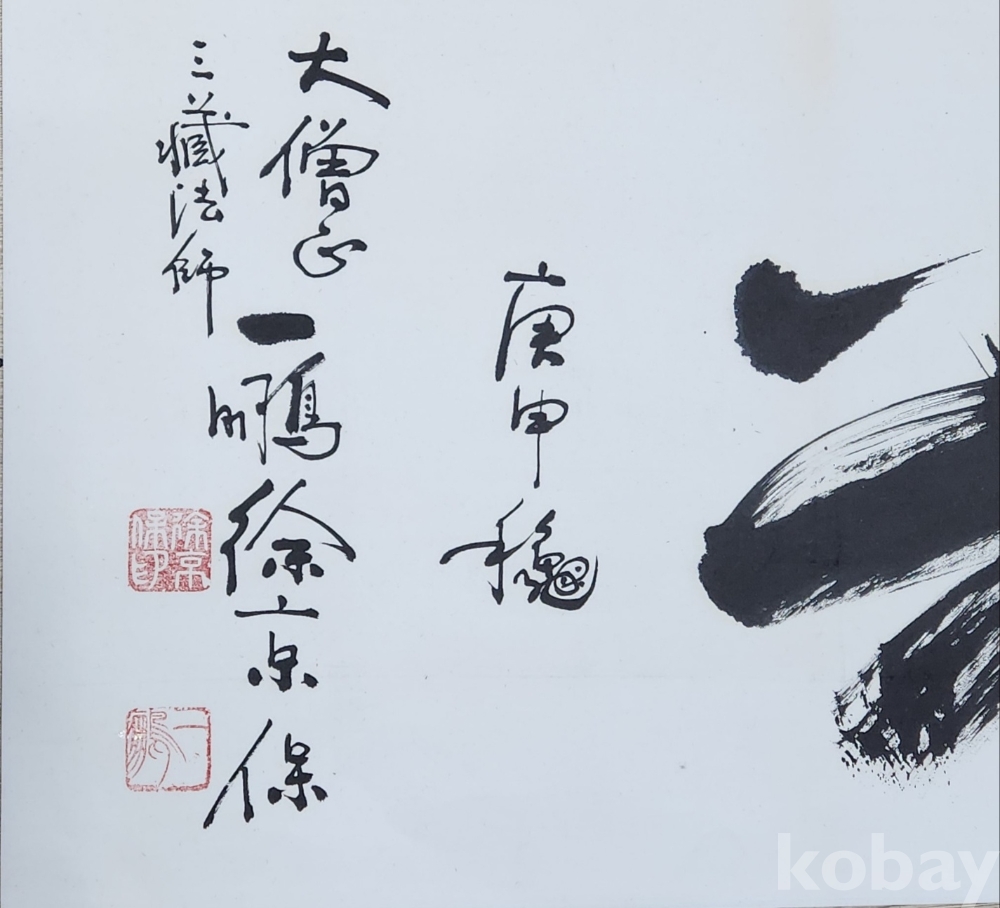 庚申秋
大僧正
三藏法師
一鵬徐京保
徐京保印
一鵬
kobay